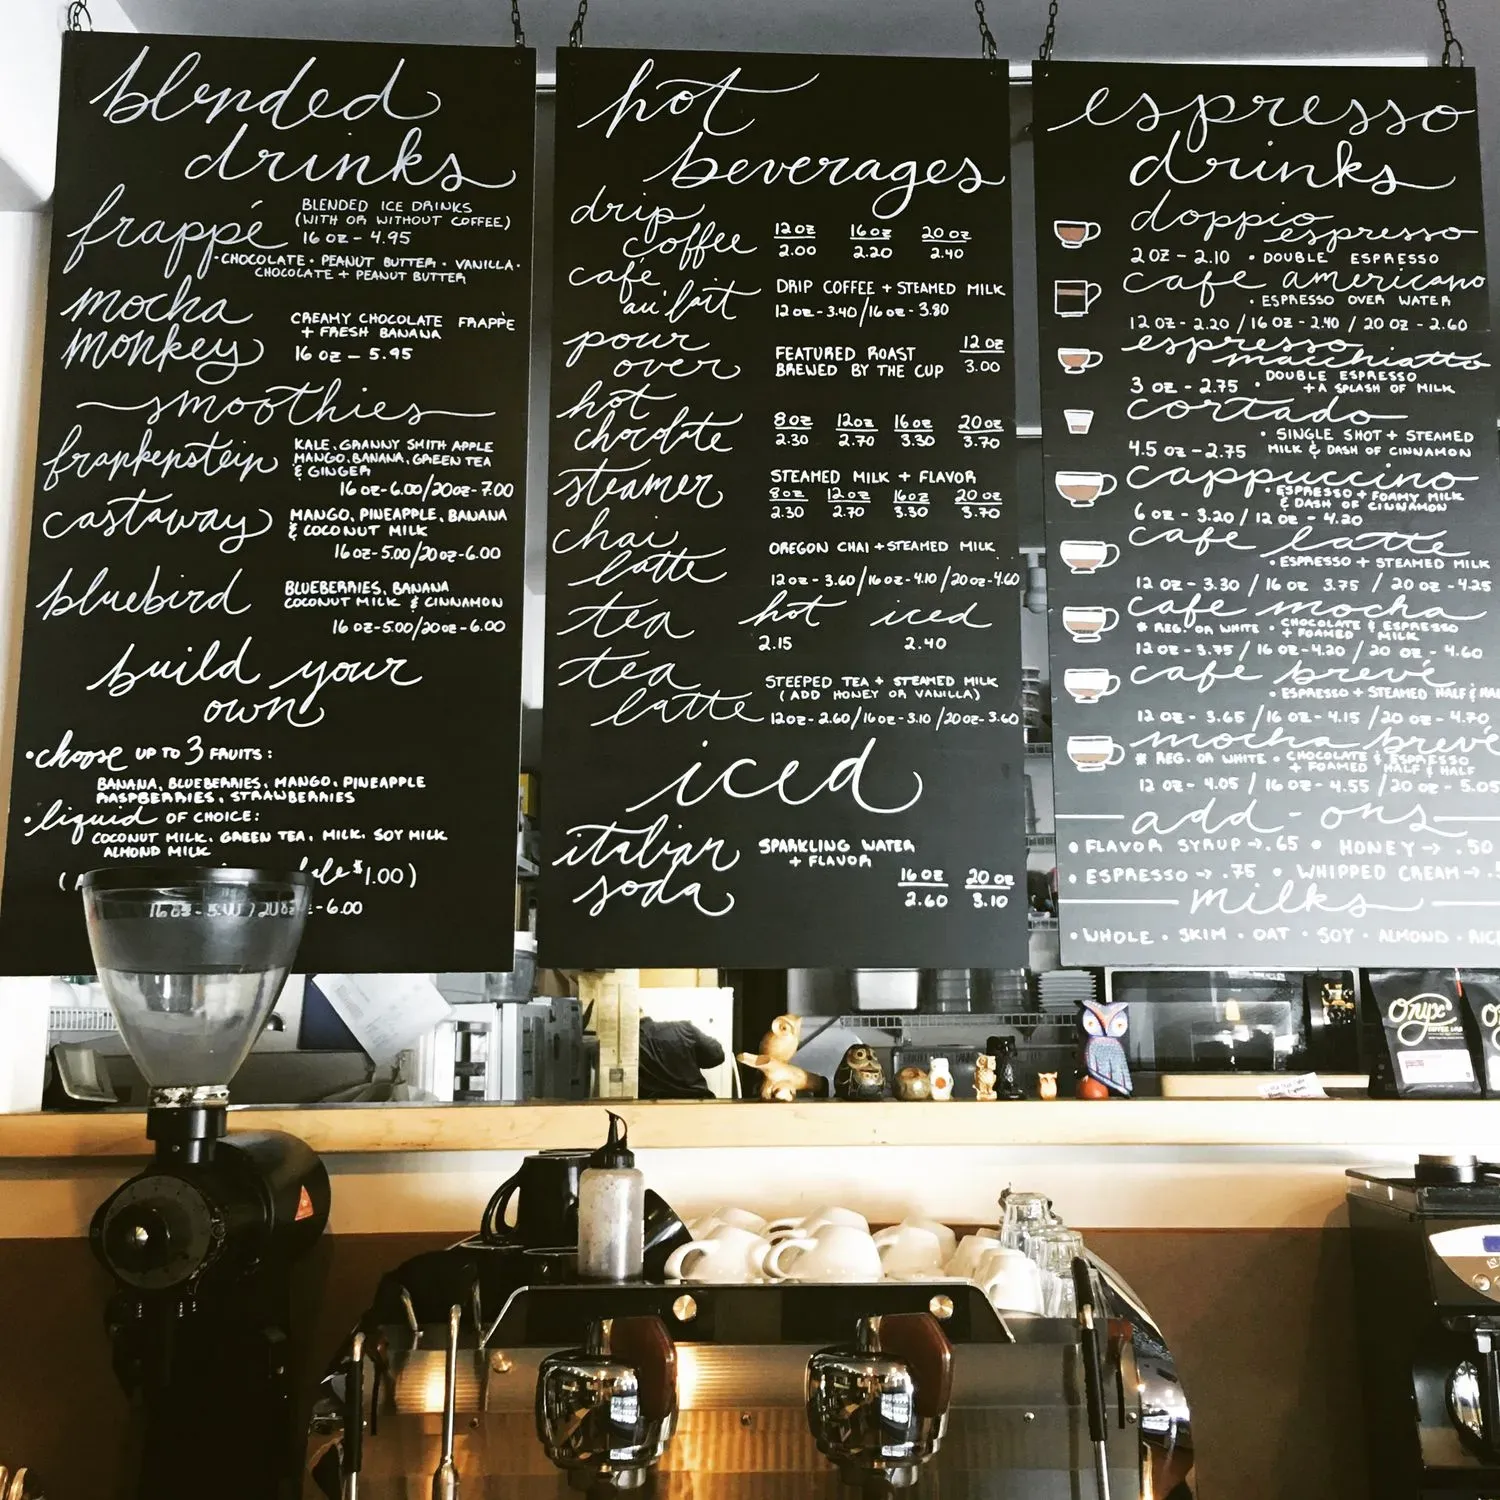 blended
drinks
frappé
BLENDED ICE DRINKS
(WITH OR WITHOUT COFFEE)
16 OZ - 4.95
• CHOCOLATE • PEANUT BUTTER • VANILLA •
CHOCOLATE + PEANUT BUTTER
mocha
monkey
CREAMY CHOCOLATE FRAPPE
+ FRESH BANANA
16 OZ - 5.95
smoothies
frankenstein
KALE, GRANNY SMITH APPLE
MANGO, BANANA, GREEN TEA
& GINGER
16 OZ-6.00/20OZ-7.00
castaway
MANGO, PINEAPPLE, BANANA
& COCONUT MILK
16 OZ-5.00/20OZ-6.00
bluebird
BLUEBERRIES, BANANA
COCONUT MILK & CINNAMON
16 OZ-5.00/20OZ-6.00
build your
own
• choose UP TO 3 FRUITS:
BANANA, BLUEBERRIES, MANGO, PINEAPPLE
RASPBERRIES, STRAWBERRIES
• liquid OF CHOICE:
COCONUT MILK, GREEN TEA, MILK, SOY MILK
ALMOND MILK
kale $1.00)
16 OZ - 5.00 / 20 OZ - 6.00
hot
beverages
drip
coffee
12 OZ 16 OZ 20 OZ
2.00 2.20 2.40
cafe
au' lait
DRIP COFFEE + STEAMED MILK
12 OZ - 3.40/16 OZ - 3.80
pour
over
FEATURED ROAST
BREWED BY THE CUP
12 OZ
3.00
hot
chocolate
8 OZ 12 OZ 16 OZ 20 OZ
2.30 2.70 3.30 3.70
steamer
STEAMED MILK + FLAVOR
8 OZ 12 OZ 16 OZ 20 OZ
2.30 2.70 3.30 3.70
chai
latte
OREGON CHAI + STEAMED MILK
12 OZ - 3.60/16 OZ - 4.10/20 OZ - 4.60
tea hot iced
2.15 2.40
tea
latte
STEEPED TEA + STEAMED MILK
(ADD HONEY OR VANILLA)
12 OZ - 2.60/16 OZ - 3.10/20 OZ - 3.60
iced
italian
soda
SPARKLING WATER
+ FLAVOR
16 OZ 20 OZ
2.60 3.10
espresso
drinks
doppio
espresso
2 OZ - 2.10 • DOUBLE ESPRESSO
cafe americano
• ESPRESSO OVER WATER
12 OZ - 2.20 / 16 OZ - 2.40 / 20 OZ - 2.60
espresso
macchiatto
DOUBLE ESPRESSO
3 OZ - 2.75 • + A SPLASH OF MILK
cortado
• SINGLE SHOT + STEAMED
4.5 OZ - 2.75 MILK & DASH OF CINNAMON
cappuccino
• ESPRESSO + FOAMY MILK
& DASH OF CINNAMON
6 OZ - 3.20 / 12 OZ - 4.20
cafe latte
• ESPRESSO + STEAMED MILK
12 OZ - 3.30 / 16 OZ 3.75 / 20 OZ - 4.25
cafe mocha
* REG. OR WHITE • CHOCOLATE & ESPRESSO
+ FOAMED MILK
12 OZ - 3.75 / 16 OZ - 4.20 / 20 OZ - 4.60
cafe brevé
• ESPRESSO + STEAMED HALF &
12 OZ - 3.65 / 16 OZ - 4.15 / 20 OZ - 4.70
mocha brevé
* REG. OR WHITE • CHOCOLATE & ESPRESSO
+ FOAMED HALF & HALF
12 OZ - 4.05 / 16 OZ - 4.55 / 20 OZ - 5.05
add-ons
• FLAVOR SYRUP → .65 • HONEY → .50
• ESPRESSO → .75 • WHIPPED CREAM →
milks
• WHOLE • SKIM • OAT • SOY • ALMOND •
Onyx
COFFEE LAB